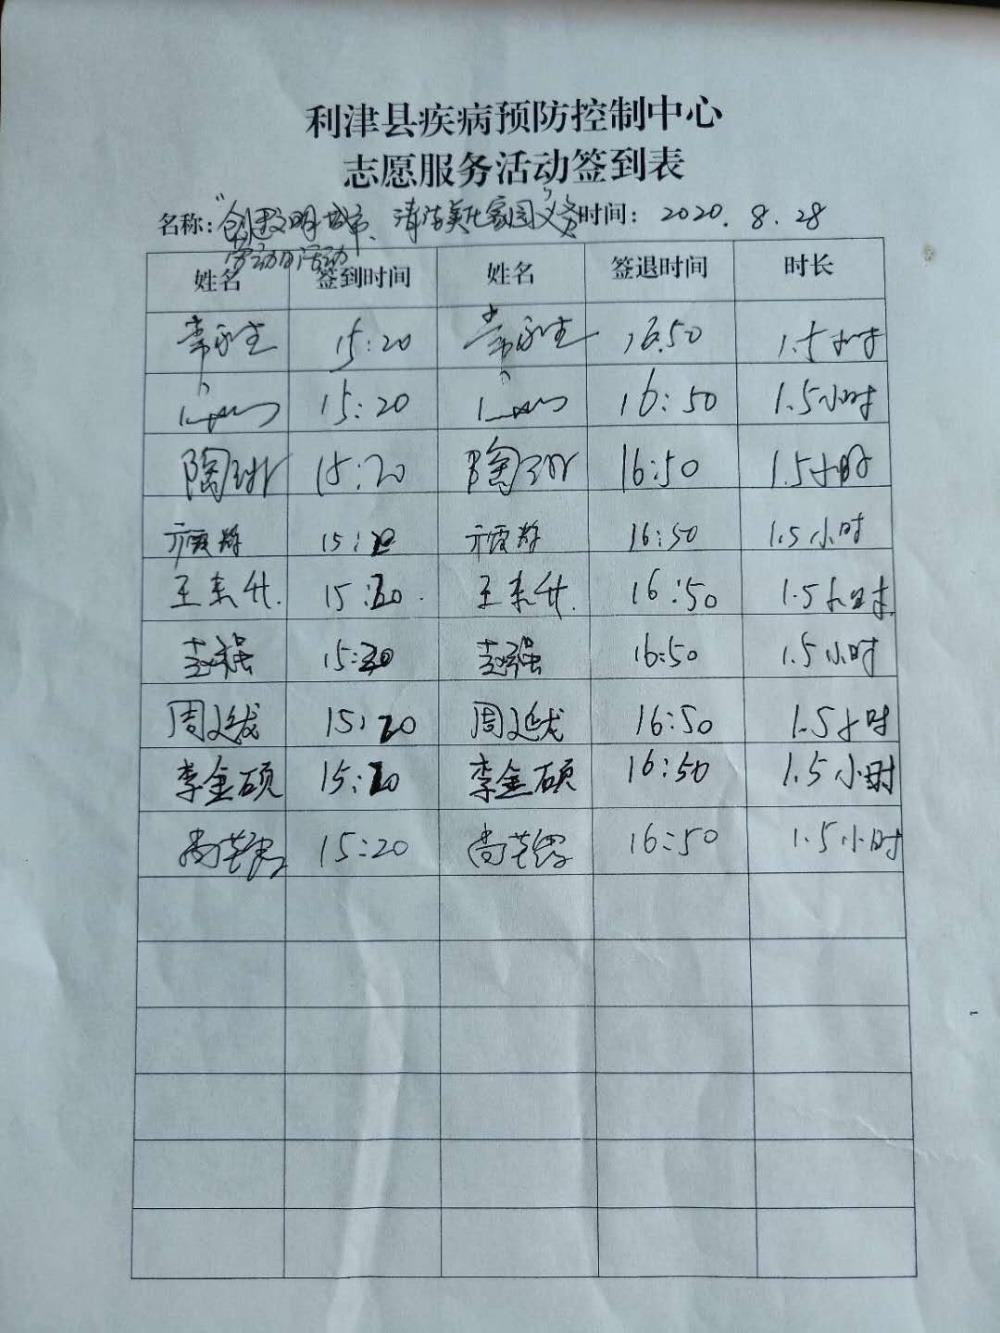 利津县疾病预防控制中心
志愿服务活动签到表
名称：“创建文明城市、清洁美化家园”义务 时间：2020.8.28
劳动日活动
姓名 签到时间 姓名 签退时间 时长
常永生 15:20 常永生 16:50 1.5小时
15:20 16:50 1.5小时
陶 15:20 陶 16:50 1.5小时
15:20 16:50 1.5小时
王来廿. 15:20. 王来廿. 16:50 1.5小时
赵强 15:20 赵强 16:50 1.5小时
周延龙 15:20 周延龙 16:50 1.5小时
李金硕 15:20 李金硕 16:50 1.5小时
尚 15:20 尚 16:50 1.5小时